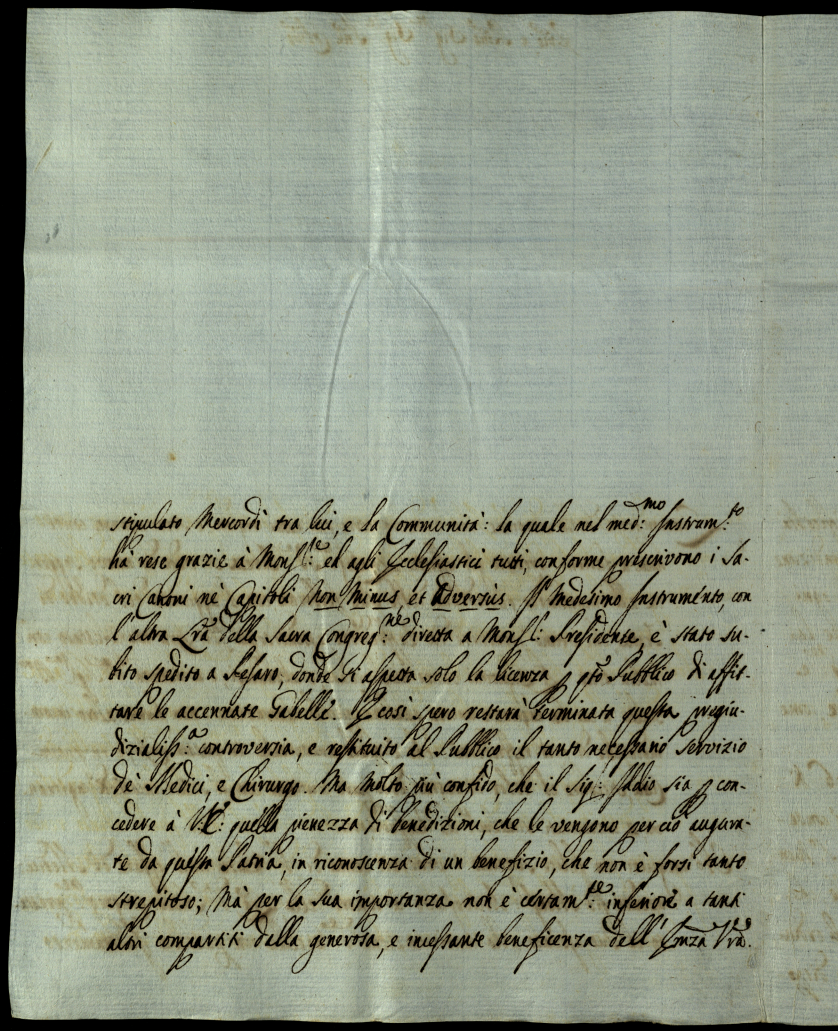 stipulato Mercordì tra lui, e la Communità: la quale nel med:mo Instrum:to
hà rese grazie à Monsr:e ed agli Ecclesiastici tutti, conforme prescrivono i Sa-
cri Canoni nè Capitoli Non Minus, et Adversus. Il medesimo Instrumento, con
l'altra Lra della Sacra Congreg:ne diretta a Monsr: Presidente, è stato su-
bito spedito a Pesaro, donde si aspetta solo la licenza p qto Pubblico di affit-
tare le accennate Gabelle. E così spero restarà terminata questa pregiu-
dizialiss:a controversia, e restituito al Pubblico il tanto necessario Servizio
dè Medici, e Chirurgo. Ma molto più confido, che il Sig: Iddio sia p con-
cedere à VE: quella pienezza di benedizioni, che le vengono perciò augura-
te da questa Patria, in riconoscenza di un benefizio, che non è forsi tanto
strepitoso; Mà per la sua importanza non è certam:te inferiore a tanti
altri compartiti dalla generosa, e incessante beneficenza dell' Emza Vra.